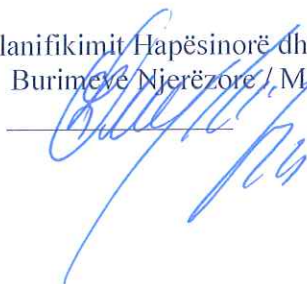 lanifikimit Hapësinorë dh
Burimeve Njerëzore / M